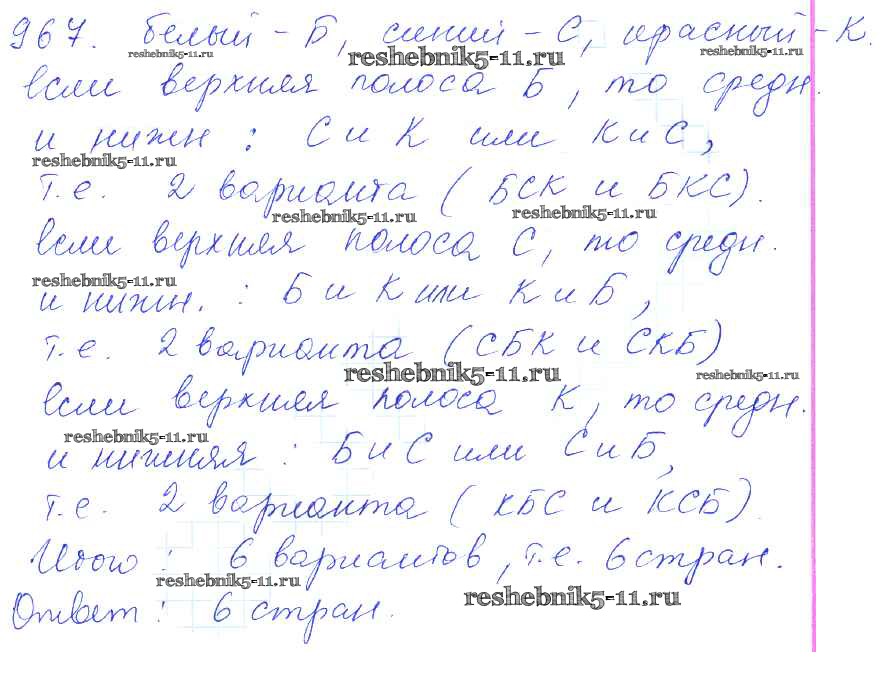 967. белый - Б, синий - С, красный - К.
если верхняя полоса Б, то средн.
и нижн : С и К или К и С,
т.е. 2 варианта ( БСК и БКС).
если верхняя полоса С, то средн.
и нижн. : Б и К или К и Б,
т.е. 2 варианта (СБК и СКБ)
если верхняя полоса К, то средн.
и нижняя : Б и С или С и Б,
т.е. 2 варианта ( КБС и КСБ).
Итого : 6 вариантов, т.е. 6 стран.
Ответ : 6 стран.
reshebnik5-11.ru
reshebnik5-11.ru
reshebnik5-11.ru
reshebnik5-11.ru
reshebnik5-11.ru
reshebnik5-11.ru
reshebnik5-11.ru
reshebnik5-11.ru
reshebnik5-11.ru
reshebnik5-11.ru
reshebnik5-11.ru
reshebnik5-11.ru